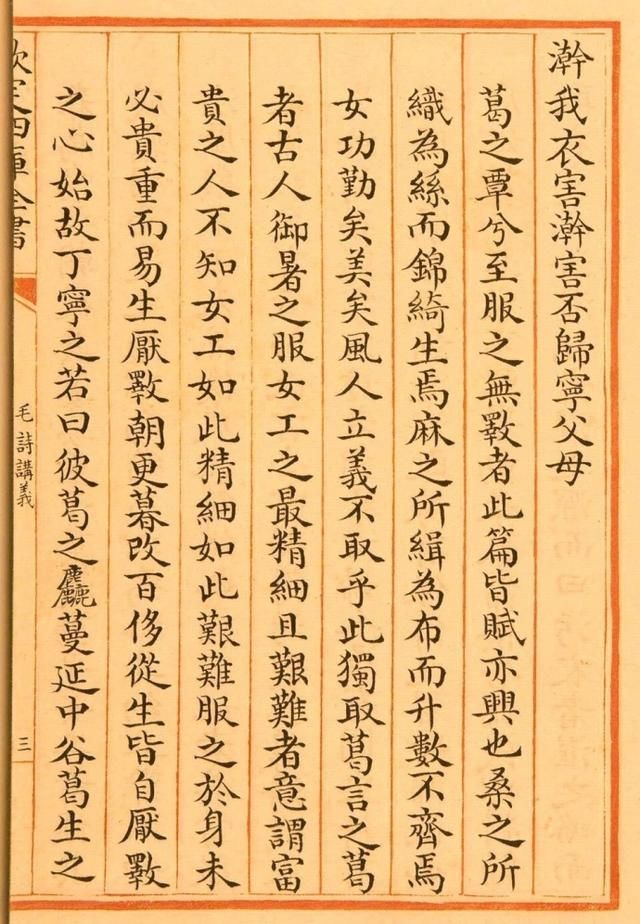 澣我衣害澣害否歸寧父母
葛之覃兮至服之無斁者此篇皆賦亦興也桑之所
織為絲而錦綺生焉麻之所緝為布而升數不齊焉
女功勤矣美矣風人立義不取乎此獨取葛言之葛
者古人御暑之服女工之最精細且艱難者意謂富
貴之人不知女工如此精細如此艱難服之於身未
必貴重而易生厭斁朝更暮改百侈從生皆自厭斁
之心始故丁寧之若曰彼葛之麤蔓延中谷葛生之
欽定四庫全書
毛詩講義
三